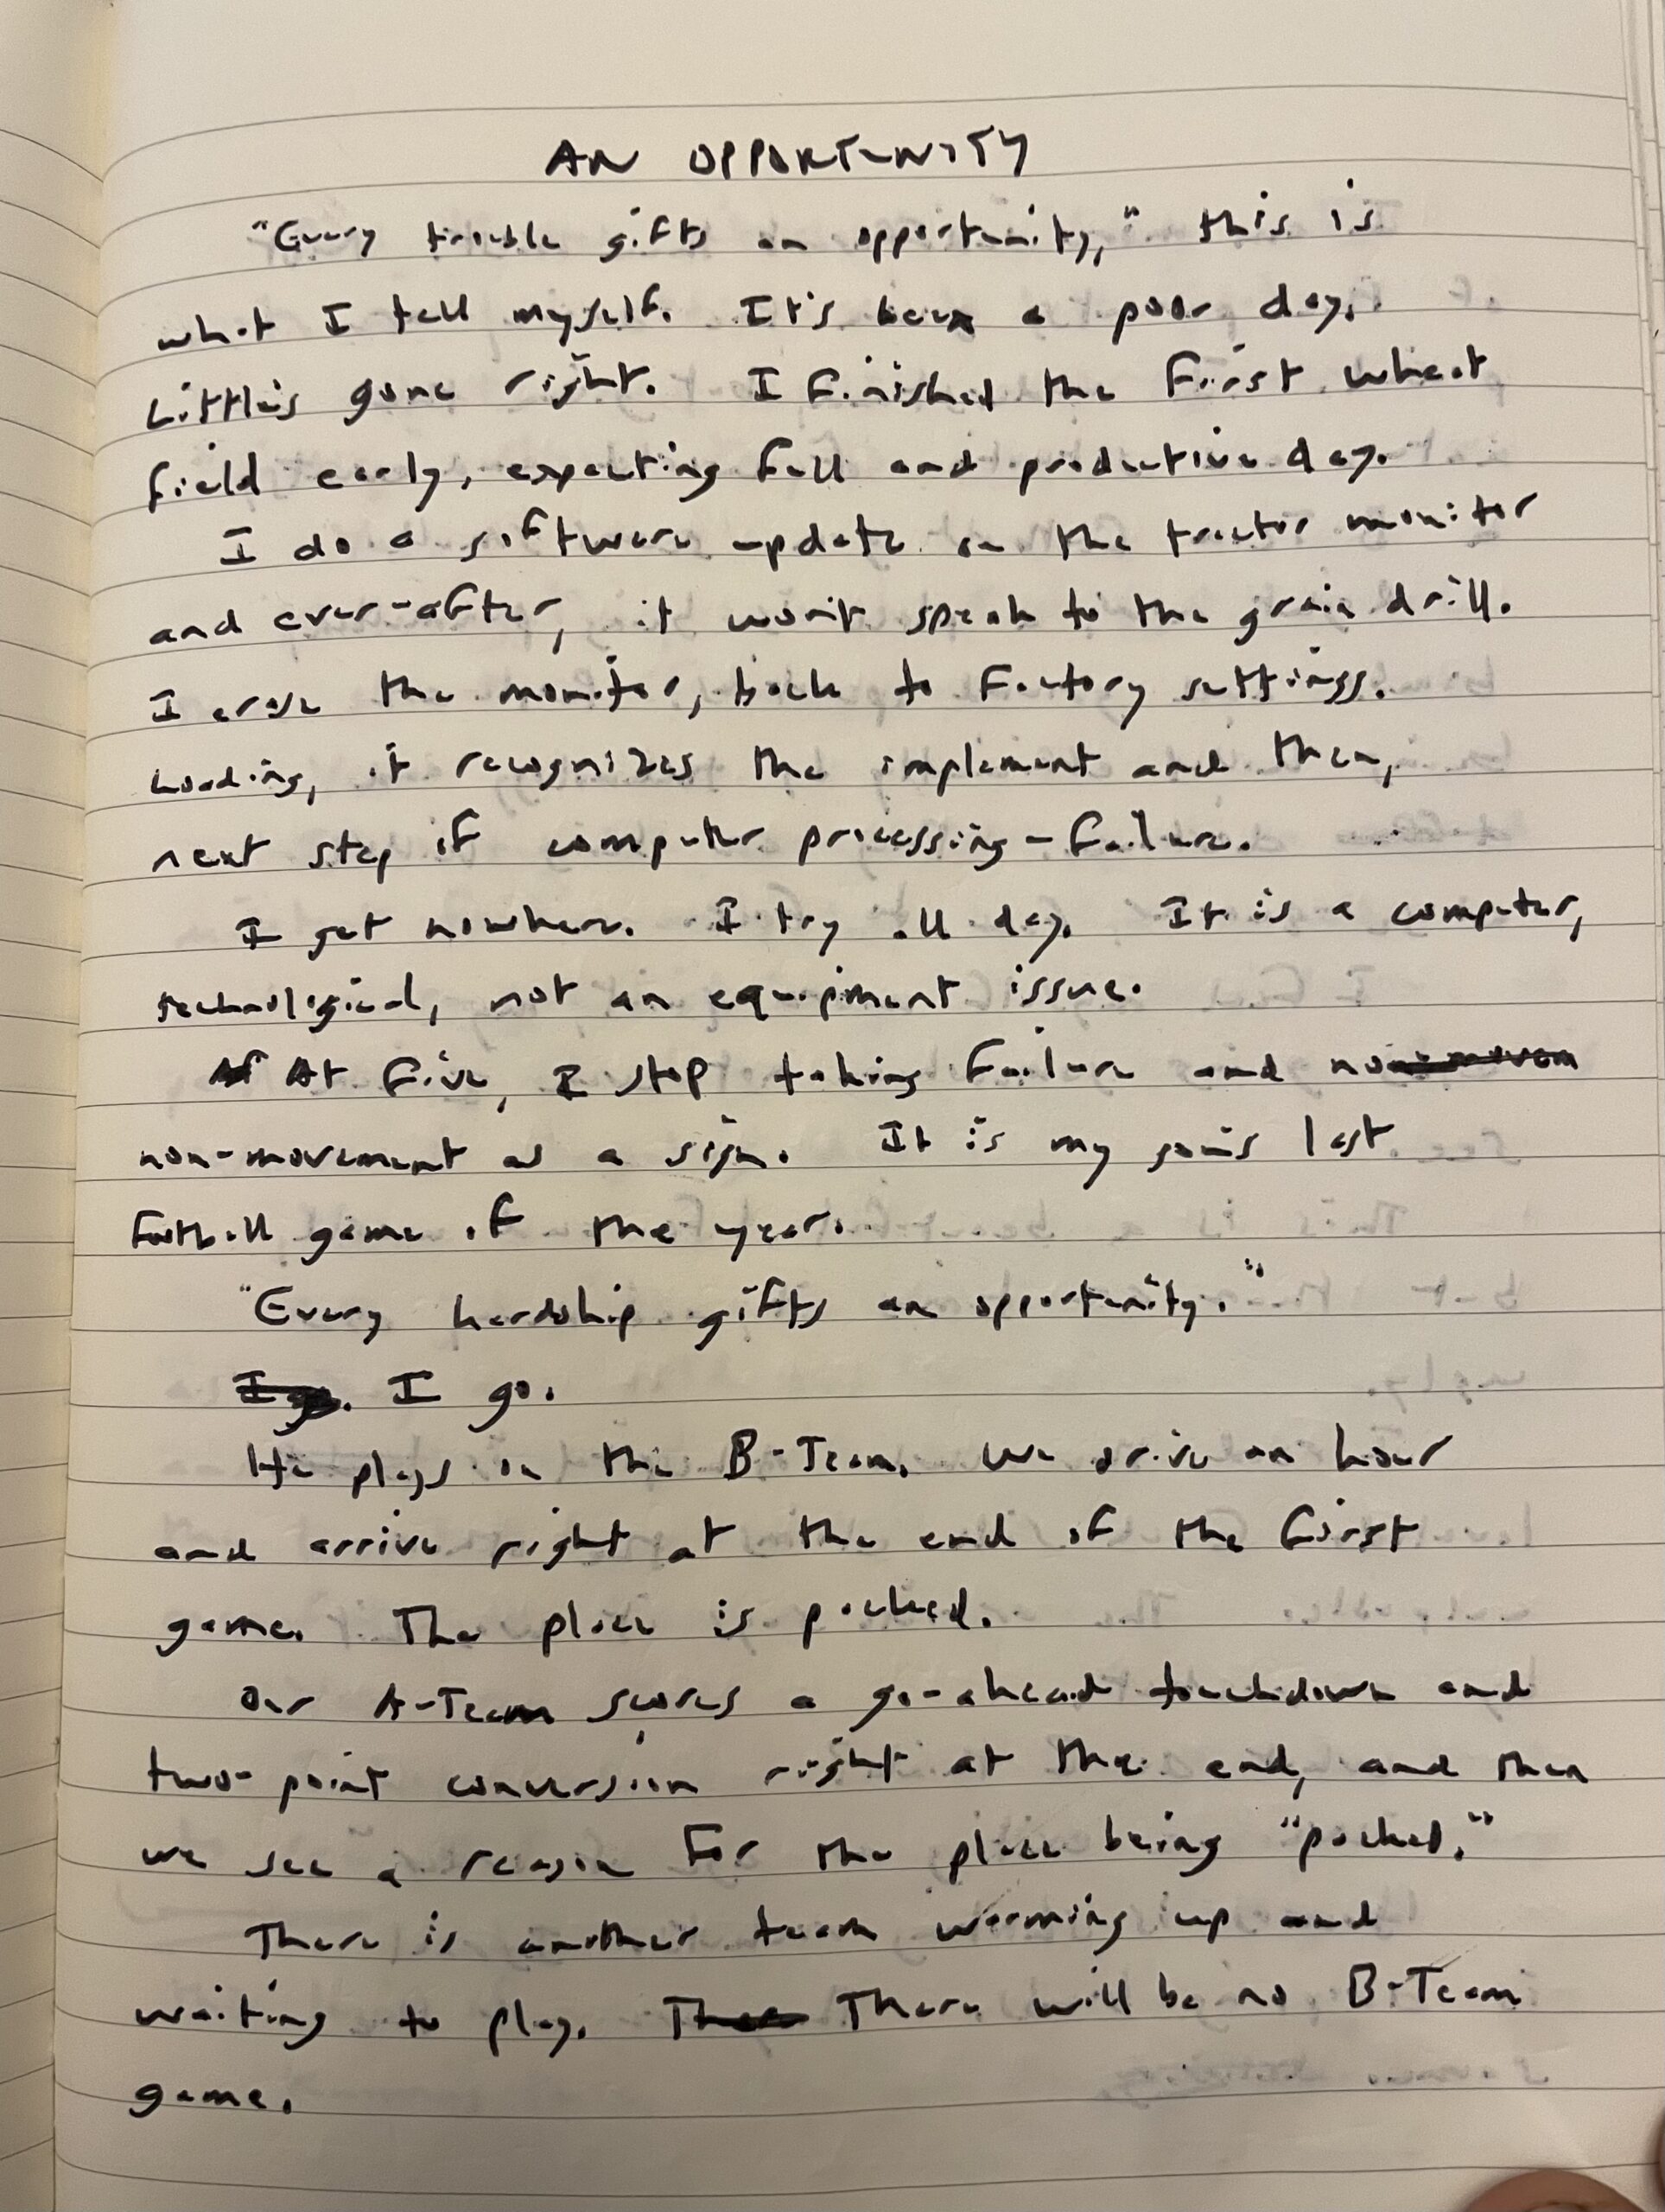 AN OPPORTUNITY
"Every trouble gifts an opportunity," this is
what I tell myself. It's been a poor day.
Little's gone right. I finished the first wheat
field early, expecting full and productive day.
I do a software update on the tractor monitor
and ever-after, it won't speak to the grain drill.
I erase the monitor, back to factory settings.
Loading, it recognizes the implement and then,
next step of computer processing - failure.
I get nowhere. I try all day. It is a computer,
technological, not an equipment issue.
At five, I stop taking failure and
non-movement as a sign. It is my son's last
football game of the year.
"Every hardship gifts an opportunity."
I go. I go.
He plays on the B-Team. We drive an hour
and arrive right at the end of the first
game. The place is packed.
Our A-Team scores a go-ahead touchdown and
two-point conversion right at the end, and then
we see a reason for the place being "packed."
There is another team warming up and
waiting to play. There will be no B-Team
game.